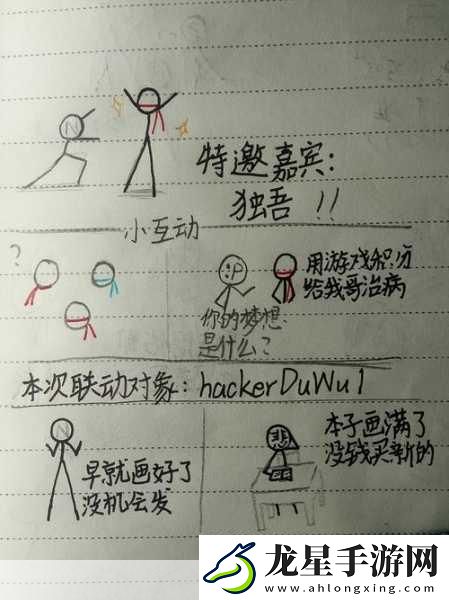 N
特邀嘉宾：
独吾！！
小互动
?
:P
用游戏积分
给我哥治病
你的梦想
是什么？
本次联动对象：hackerDuWu1
N
早就画好了
没机会发
悲
本子画满了
没钱买新的
龙星手游网
www.ahlongxing.com